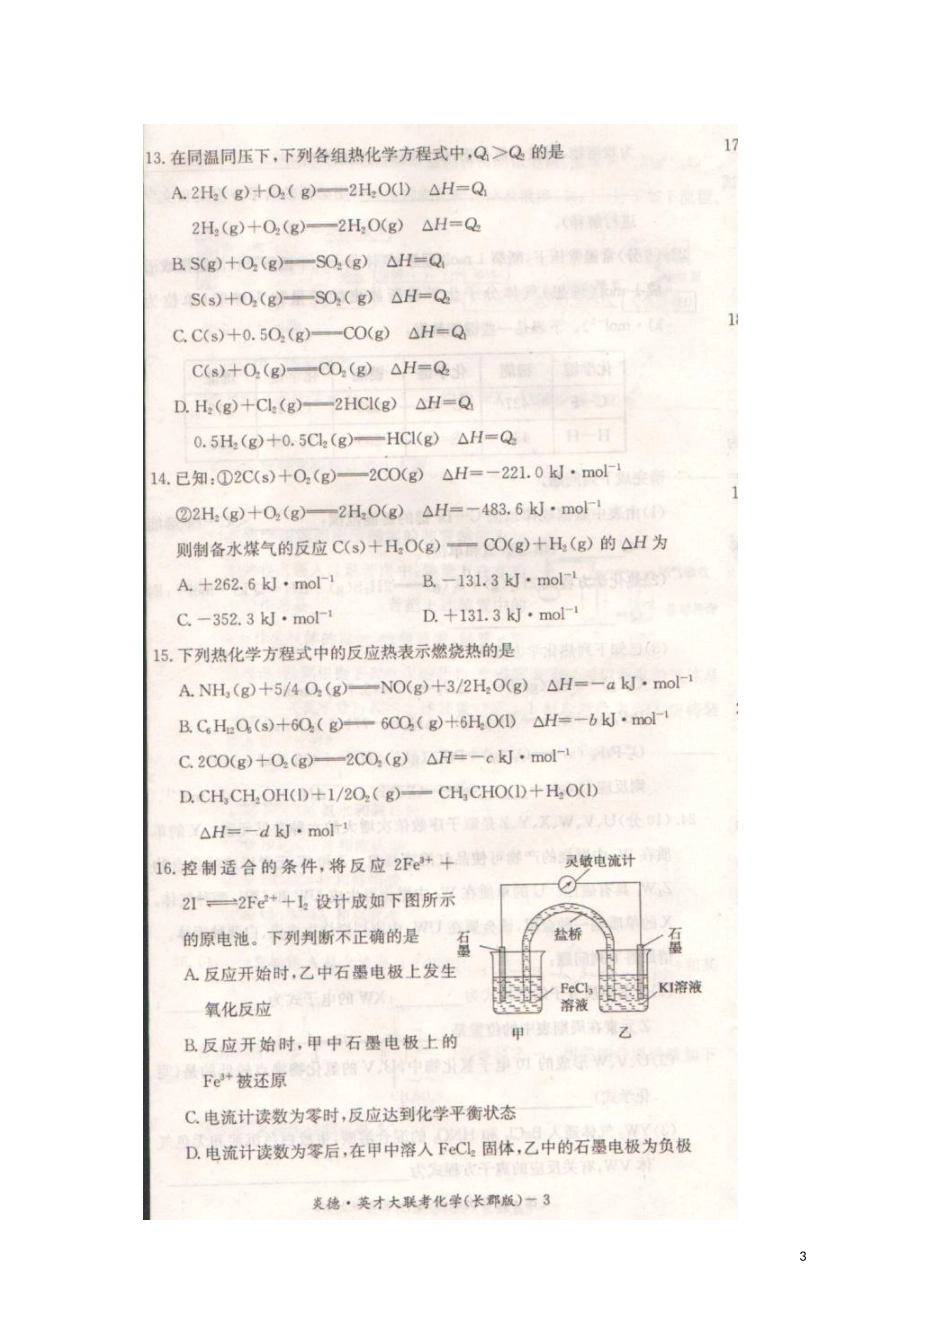 13.在同温同压下,下列各组热化学方程式中,Q₁>Q₂ 的是
A.2H₂(g)+O₂(g)══2H₂O(l) △H=Q₁
2H₂(g)+O₂(g)══2H₂O(g) △H=Q₂
B.S(g)+O₂(g)══SO₂(g) △H=Q₁
S(s)+O₂(g)══SO₂(g) △H=Q₂
C.C(s)+0.5O₂(g)══CO(g) △H=Q₁
C(s)+O₂(g)══CO₂(g) △H=Q₂
D.H₂(g)+Cl₂(g)══2HCl(g) △H=Q₁
0.5H₂(g)+0.5Cl₂(g)══HCl(g) △H=Q₂
14.已知:①2C(s)+O₂(g)══2CO(g) △H=-221.0 kJ·mol⁻¹
②2H₂(g)+O₂(g)══2H₂O(g) △H=-483.6 kJ·mol⁻¹
则制备水煤气的反应 C(s)+H₂O(g)══CO(g)+H₂(g) 的 △H 为
A.+262.6 kJ·mol⁻¹ B.-131.3 kJ·mol⁻¹
C.-352.3 kJ·mol⁻¹ D.+131.3 kJ·mol⁻¹
15.下列热化学方程式中的反应热表示燃烧热的是
A.NH₃(g)+5/4 O₂(g)══NO(g)+3/2H₂O(g) △H=-a kJ·mol⁻¹
B.C₆H₁₂O₆(s)+6O₂(g)══6CO₂(g)+6H₂O(l) △H=-b kJ·mol⁻¹
C.2CO(g)+O₂(g)══2CO₂(g) △H=-c kJ·mol⁻¹
D.CH₃CH₂OH(l)+1/2O₂(g)══CH₃CHO(l)+H₂O(l)
△H=-d kJ·mol⁻¹
16.控制适合的条件,将反应 2Fe³⁺+
2I⁻⇌2Fe²⁺+I₂ 设计成如下图所示
的原电池。下列判断不正确的是
A.反应开始时,乙中石墨电极上发生
氧化反应
B.反应开始时,甲中石墨电极上的
Fe³⁺被还原
灵敏电流计
石墨
盐桥
石墨
FeCl₃
溶液
KI溶液
甲 乙
C.电流计读数为零时,反应达到化学平衡状态
D.电流计读数为零后,在甲中溶入 FeCl₂ 固体,乙中的石墨电极为负极
炎德·英才大联考化学(长郡版)-3
17
3